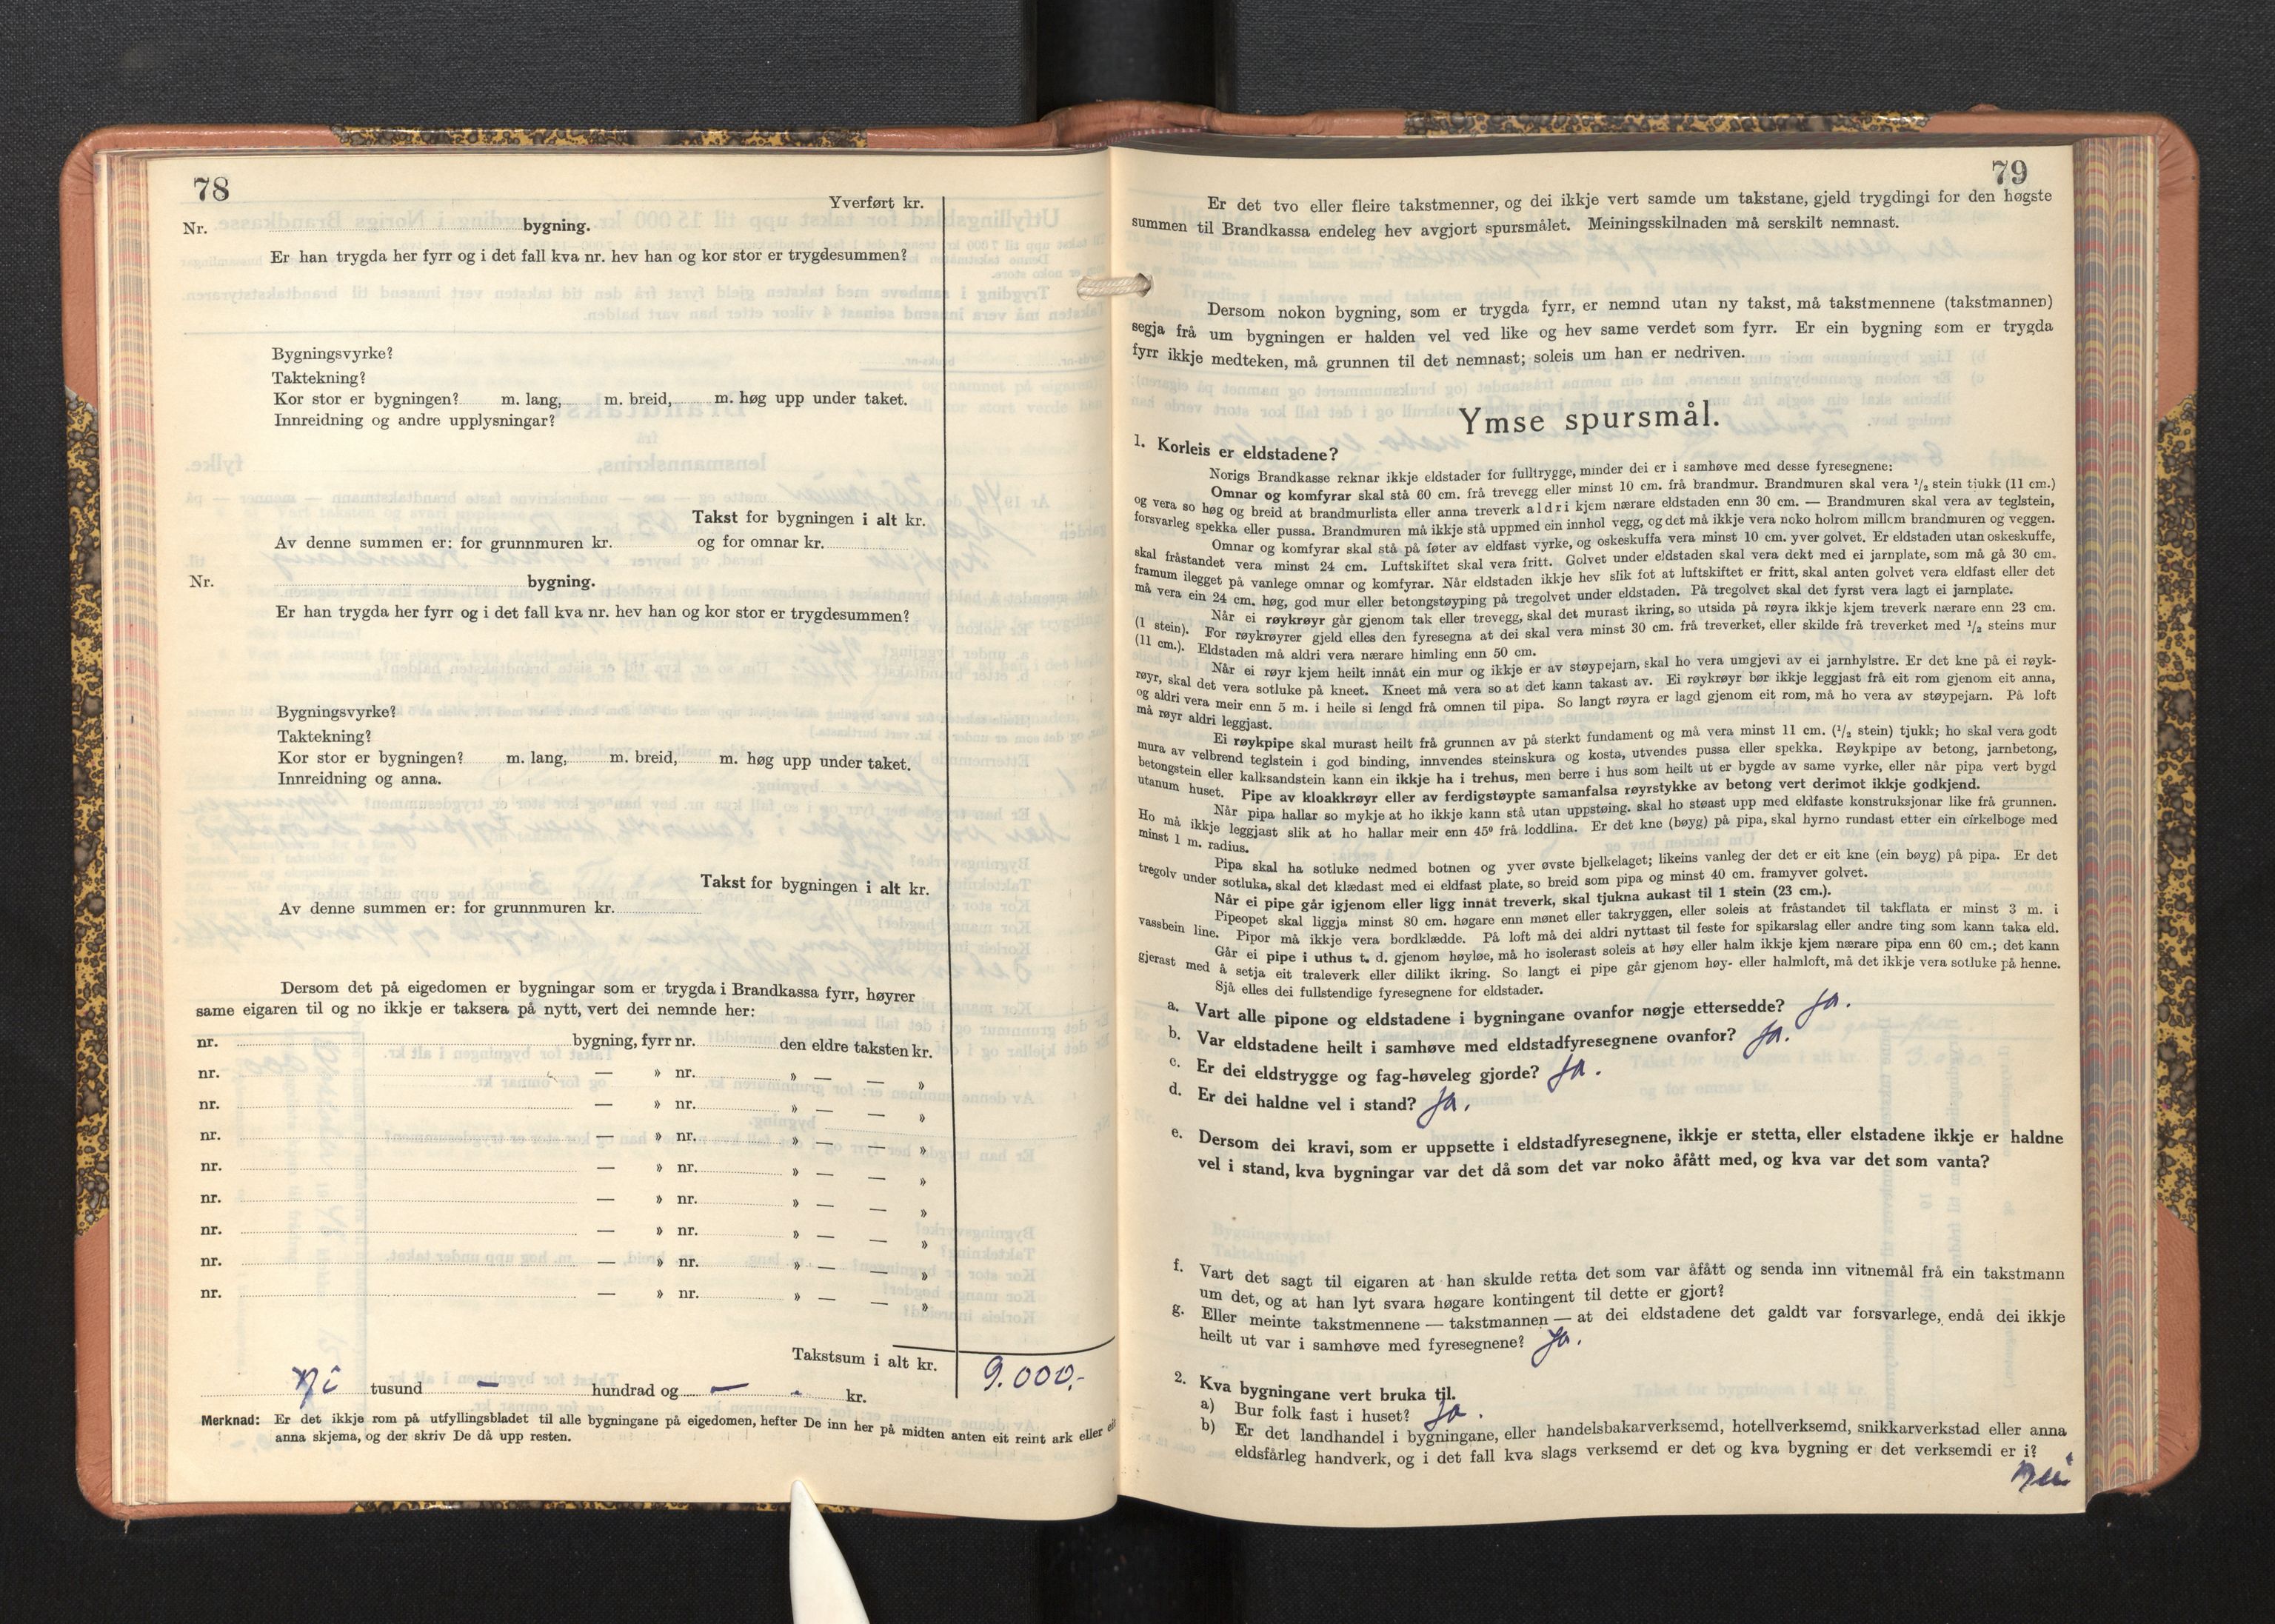 78
Yverført kr.
Nr. bygning.
Er han trygda her fyrr og i det fall kva nr. hev han og kor stor er trygdesummen?
Bygningsvyrke?
Taktekning?
Kor stor er bygningen? m. lang, m. breid, m. høg upp under taket.
Innreidning og andre upplysningar?
Takst for bygningen i alt kr.
Av denne summen er: for grunnmuren kr. og for omnar kr.
Nr. bygning.
Er han trygda her fyrr og i det fall kva nr. hev han og kor stor er trygdesummen?
Bygningsvyrke?
Taktekning?
Kor stor er bygningen? m. lang, m. breid, m. høg upp under taket.
Innreidning og anna.
Takst for bygningen i alt kr.
Av denne summen er: for grunnmuren kr.
Dersom det på eigedomen er bygningar som er trygda i Brandkassa fyrr, høyrer
same eigaren til og no ikkje er taksera på nytt, vert dei nemnde her:
nr. bygning, fyrr nr. den eldre taksten kr.
nr. — » nr. » — — »
nr. — » nr. » — — »
nr. — » nr. » — — »
nr. — » nr. » — — »
nr. — » nr. » — — »
nr. — » nr. » — — »
nr. — » nr. » — — »
nr. — » nr. » — — »
Takstsum i alt kr. 9.000,-
Ni tusund — hundrad og — - kr.
Merknad: Er det ikkje rom på utfyllingsbladet til alle bygningane på eigedomen, hefter De inn her på midten anten eit reint ark eller eit
anna skjema, og der skriv De då upp resten.
79
Er det tvo eller fleire takstmenner, og dei ikkje vert samde um takstane, gjeld trygdingi for den høgste
summen til Brandkassa endeleg hev avgjort spursmålet. Meiningsskilnaden må serskilt nemnast.
Dersom nokon bygning, som er trygda fyrr, er nemnd utan ny takst, må takstmennene (takstmannen)
segja frå um bygningen er halden vel ved like og hev same verdet som fyrr. Er ein bygning som er trygda
fyrr ikkje medteken, må grunnen til det nemnast; soleis um han er nedriven.
Ymse spursmål.
1. Korleis er eldstadene?
Norigs Brandkasse reknar ikkje eldstader for fulltrygge, minder dei er i samhøve med desse fyresegnene:
Omnar og komfyrar skal stå 60 cm. frå trevegg eller minst 10 cm. frå brandmur. Brandmuren skal vera ½ stein tjukk (11 cm.)
og vera so høg og breid at brandmurlista eller anna treverk aldri kjem nærare eldstaden enn 30 cm. — Brandmuren skal vera av teglstein,
forsvarleg spekka eller pussa. Brandmuren må ikkje stå uppmed ein innhol vegg, og det må ikkje vera noko holrom millem brandmuren og veggen.
Omnar og komfyrar skal stå på føter av eldfast vyrke, og oskeskuffa vera minst 10 cm. yver golvet. Er eldstaden utan oskeskuffe,
skal fråstandet vera minst 24 cm. Luftskiftet skal vera fritt. Golvet under eldstaden skal vera dekt med ei jarnplate, som må gå 30 cm.
framum ilegget på vanlege omnar og komfyrar. Når eldstaden ikkje hev slik fot at luftskiftet er fritt, skal anten golvet vera eldfast eller det
må vera ein 24 cm. høg, god mur eller betongstøyping på tregolvet under eldstaden. På tregolvet skal det fyrst vera lagt ei jarnplate.
Når ei røykrøyr går gjenom tak eller trevegg, skal det murast ikring, so utsida på røyra ikkje kjem treverk nærare enn 23 cm.
(1 stein). For røykrøyrer gjeld elles den fyresegna at dei skal vera minst 30 cm. frå treverket, eller skilde frå treverket med ½ steins mur
(11 cm.). Eldstaden må aldri vera nærare himling enn 50 cm.
Når ei røyr kjem heilt innåt ein mur og ikkje er av støypejarn, skal ho vera umgjevi av ei jarnhylstre. Er det kne på ei røyk-
røyr, skal det vera sotluke på kneet. Kneet må vera so at det kann takast av. Ei røykrøyr bør ikkje leggjast frå eit rom gjenom eit anna,
og aldri vera meir enn 5 m. i heile si lengd frå omnen til pipa. So langt røyra er lagd gjenom eit rom, må ho vera av støypejarn. På loft
må røyr aldri leggjast.
Ei røykpipe skal murast heilt frå grunnen av på sterkt fundament og må vera minst 11 cm. (½ stein) tjukk; ho skal vera godt
mura av velbrend teglstein i god binding, innvendes steinskura og kosta, utvendes pussa eller spekka. Røykpipe av betong, jarnbetong,
betongstein eller kalksandstein kann ein ikkje ha i trehus, men berre i hus som heilt ut er bygde av same vyrke, eller når pipa vert bygd
utanum huset. Pipe av kloakkrøyr eller av ferdigstøypte samanfalsa røyrstykke av betong vert derimot ikkje godkjend.
Når pipa hallar so mykje at ho ikkje kann stå utan uppstøing, skal ho støast upp med eldfaste konstruksjonar like frå grunnen.
Ho må ikkje leggjast slik at ho hallar meir enn 45° frå loddlina. Er det kne (bøyg) på pipa, skal hyrno rundast etter ein cirkelboge med
minst 1 m. radius.
Pipa skal ha sotluke nedmed botnen og yver øvste bjelkelaget; likeins vanleg der det er eit kne (ein bøyg) på pipa. Er det
tregolv under sotluka, skal det klædast med ei eldfast plate, so breid som pipa og minst 40 cm. framyver golvet.
Når ei pipe går igjenom eller ligg innåt treverk, skal tjukna aukast til 1 stein (23 cm.).
Pipeopet skal liggja minst 80 cm. høgare enn mønet eller takryggen, eller soleis at fråstandet til takflata er minst 3 m. i
vassbein line. Pipor må ikkje vera bordklædde. På loft må dei aldri nyttast til feste for spikarslag eller andre ting som kann taka eld.
Går ei pipe i uthus t. d. gjenom høyløe, må ho isolerast soleis at høy eller halm ikkje kjem nærare pipa enn 60 cm.; det kann
gjerast med å setja eit traleverk eller dilikt ikring. So langt ei pipe går gjenom høy- eller halmloft, må det ikkje vera sotluke på henne.
Sjå elles dei fullstendige fyresegnene for eldstader.
a. Vart alle pipone og eldstadene i bygningane ovanfor nøgje ettersedde? Ja.
b. Var eldstadene heilt i samhøve med eldstadfyresegnene ovanfor? Ja.
c. Er dei eldstrygge og fag-høveleg gjorde? Ja.
d. Er dei haldne vel i stand? Ja.
e. Dersom dei kravi, som er uppsette i eldstadfyresegnene, ikkje er stetta, eller elstadene ikkje er haldne
vel i stand, kva bygningar var det då som det var noko åfått med, og kva var det som vanta?
f. Vart det sagt til eigaren at han skulde retta det som var åfått og senda inn vitnemål frå ein takstmann
um det, og at han lyt svara høgare kontingent til dette er gjort?
g. Eller meinte takstmennene — takstmannen — at dei eldstadene det galdt var forsvarlege, endå dei ikkje
heilt ut var i samhøve med fyresegnene? Ja.
2. Kva bygningane vert bruka til.
a) Bur folk fast i huset? Ja.
b) Er det landhandel i bygningane, eller handelsbakarverksemd, hotellverksemd, snikkarverkstad eller anna
eldsfårleg handverk, og i det fall kva slags verksemd er det og kva bygning er det verksemdi er i?
Nei